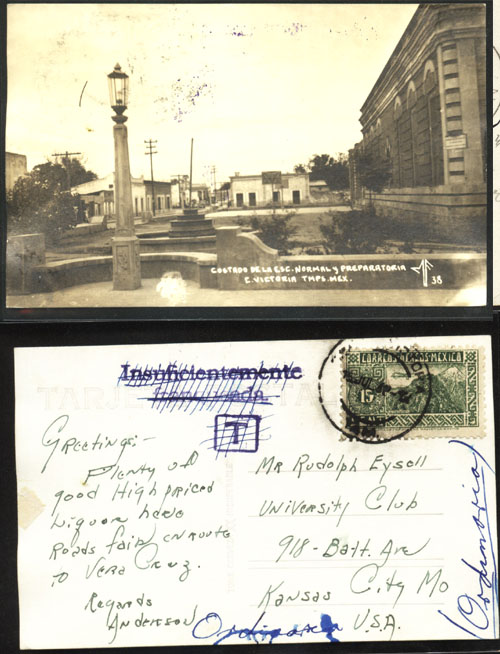 COSTADO DE LA ESC. NORMAL Y PREPARATORIA
C. VICTORIA TMPS. MEX.
38
Insuficientemente
T
CORREOS MEXICO
15
TARJETA POSTAL
Greetings:-
Plenty off
good High priced
Liquor here
Roads fair en route
to Vera Cruz.
Regards
Anderson
Mr Rudolph Eysell
University Club
918- Balt. Ave
Kansas City Mo
U.S.A.
Ordinaria
(Ordinaria)